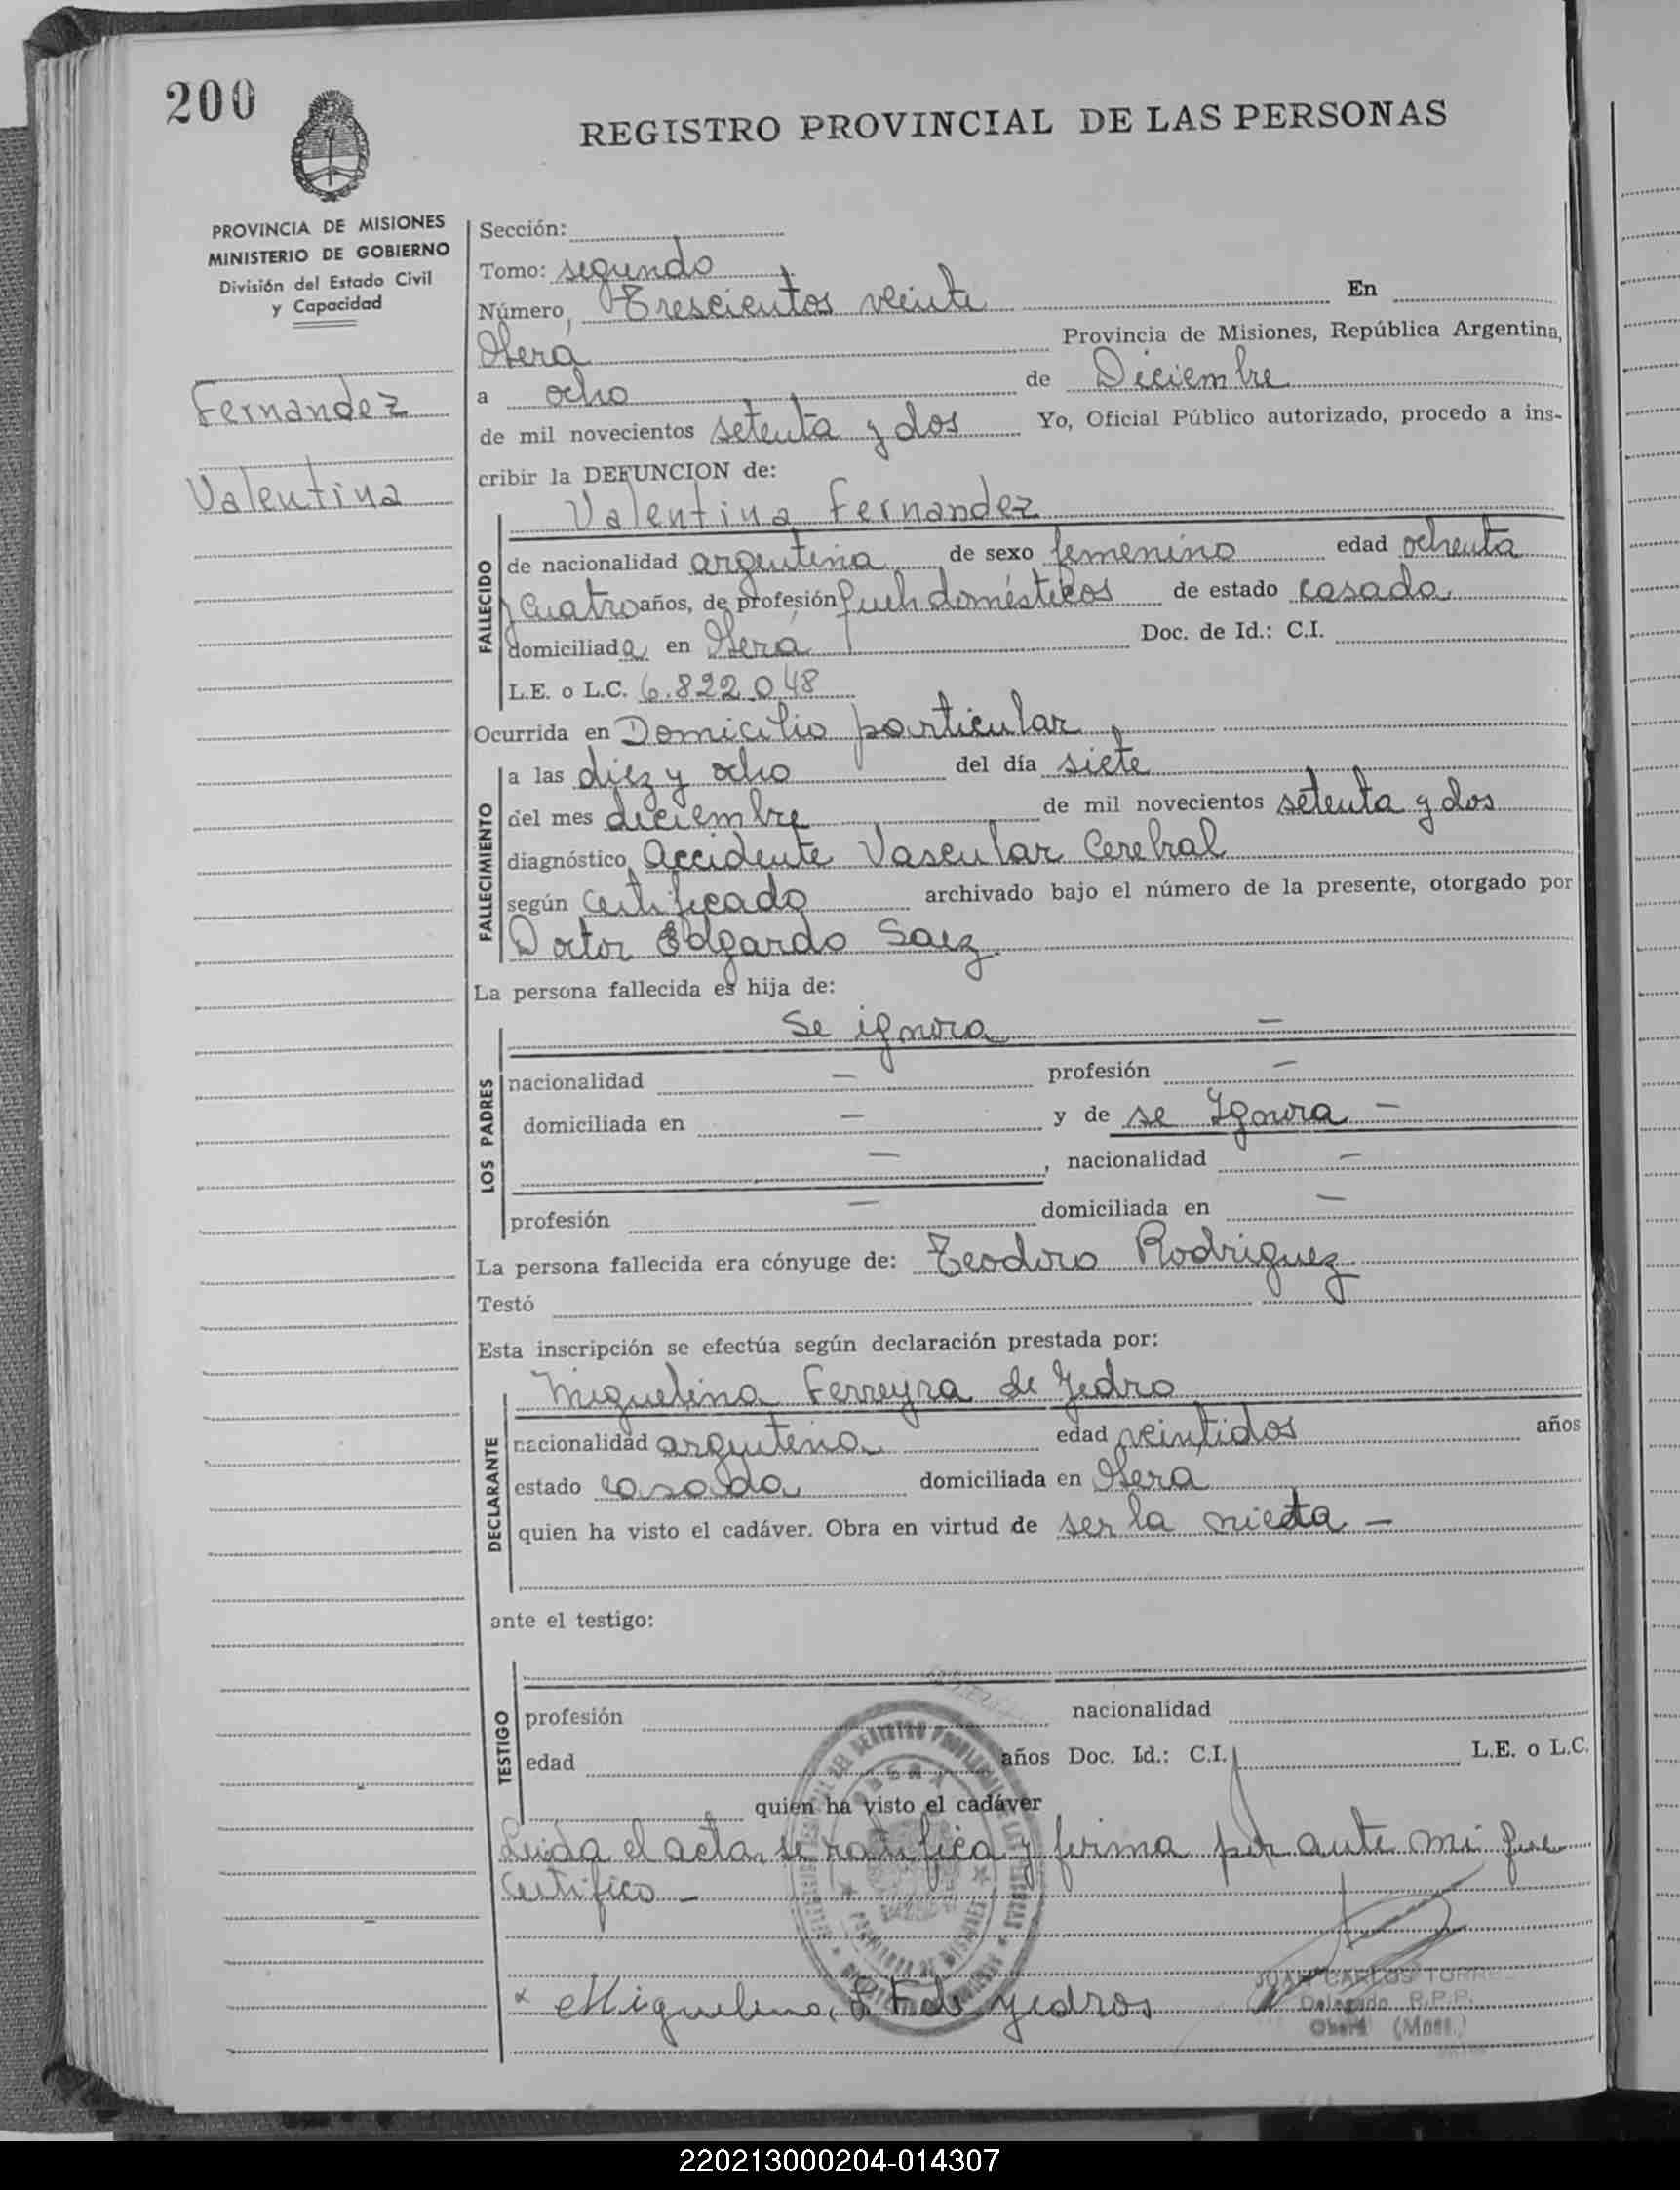 200
REGISTRO PROVINCIAL DE LAS PERSONAS
PROVINCIA DE MISIONES
MINISTERIO DE GOBIERNO
División del Estado Civil
y Capacidad
Fernandez
Valentina
Sección:
Tomo: segundo
Número, Trescientos veinte En
Oberá Provincia de Misiones, República Argentina,
a ocho de Diciembre
de mil novecientos setenta y dos Yo, Oficial Público autorizado, procedo a ins-
cribir la DEFUNCION de:
Valentina Fernandez
FALLECIDO
de nacionalidad argentina de sexo femenino edad ochenta
y cuatro años, de profesión domésticos de estado casada
domiciliada en Oberá Doc. de Id.: C.I.
L.E. o L.C. 6.822.048
Ocurrida en Domicilio particular
FALLECIMIENTO
a las diez y ocho del día siete
del mes diciembre de mil novecientos setenta y dos
diagnóstico Accidente Vascular Cerebral
según certificado archivado bajo el número de la presente, otorgado por
Doctor Edgardo Saez
La persona fallecida es hija de:
Se ignora —
LOS PADRES
nacionalidad — profesión —
domiciliada en — y de se Ignora —
—, nacionalidad —
profesión — domiciliada en —
La persona fallecida era cónyuge de: Teodoro Rodriguez
Testó
Esta inscripción se efectúa según declaración prestada por:
Miguelina Ferreyra de Yedro
DECLARANTE
nacionalidad argentina edad veintidos años
estado casada domiciliada en Oberá
quien ha visto el cadáver. Obra en virtud de ser la nieta —
ante el testigo:
TESTIGO
profesión nacionalidad
edad años Doc. Id.: C.I. L.E. o L.C.
quien ha visto el cadáver
Leida el acta, se ratifica y firma por ante mi que
Certifico —
OBERA
PROVINCIA DE MISIONES
x Miguelina F. de Yedros
JUAN CARLOS TORRES
Delegado R.P.P.
Oberá (Mnes.)
220213000204-014307